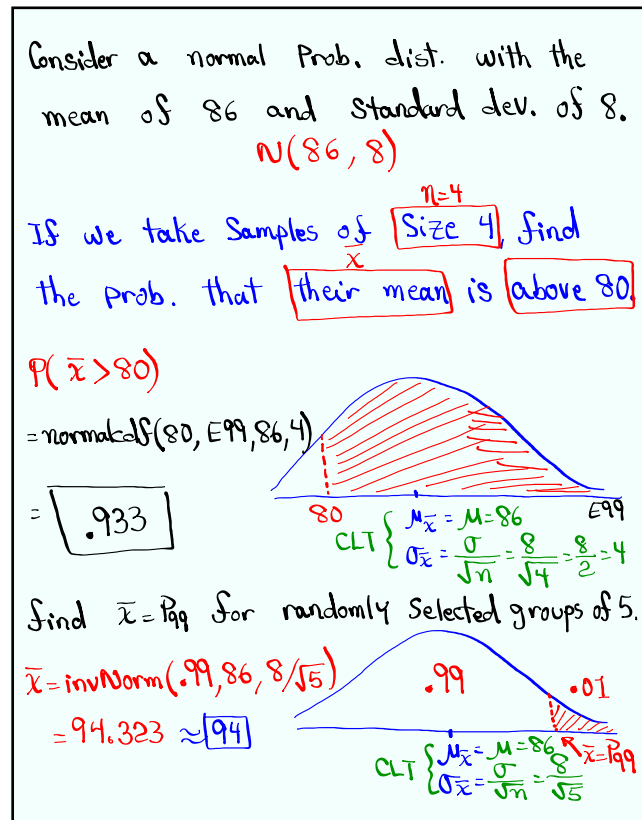 Consider a normal Prob. dist. with the
mean of 86 and Standard dev. of 8.
N(86, 8)
n=4
If we take Samples of Size 4, find
x̄
the Prob. that their mean is above 80.
P(x̄ > 80)
= normalcdf(80, E99, 86, 4)
= .933
80
E99
CLT { μx̄ = μ = 86
σx̄ = σ/√n = 8/√4 = 8/2 = 4
find x̄ = P99 for randomly Selected groups of 5.
x̄ = invNorm(.99, 86, 8/√5)
= 94.323 ≈ 94
.99
.01
x̄ = P99
CLT { μx̄ = μ = 86
σx̄ = σ/√n = 8/√5